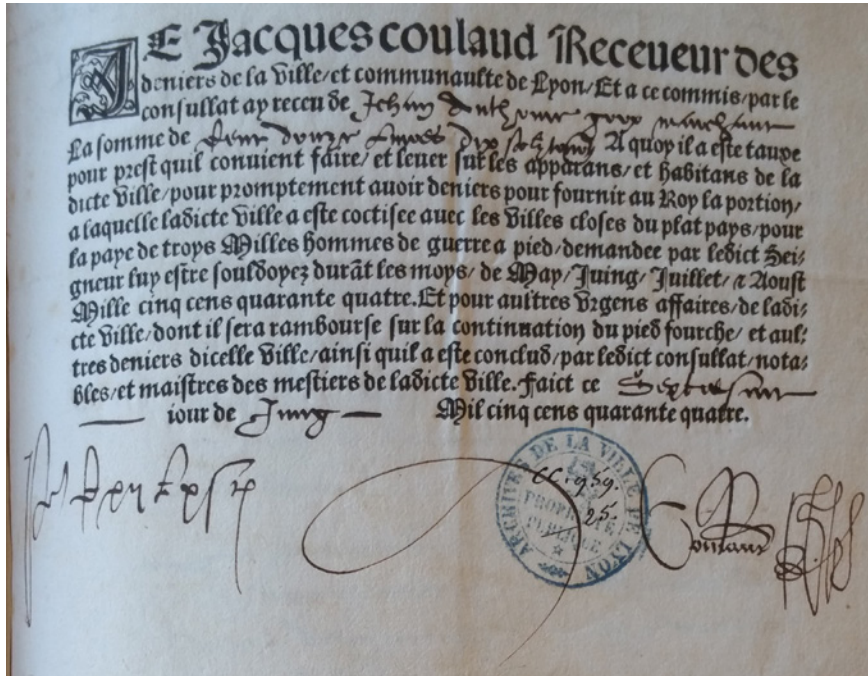 JE Jacques coulaud Receueur des
deniers de la Ville/et communaulte de Lyon/Et a ce commis/par le
consullat ay receu de Jehan Anthoine marchant
La somme de livres dix solz A quoy il a este tauxe
pour prest quil conuient faire/et leuer sur les apparans/et habitans de la
dicte Ville/pour promptement auoir deniers pour fournir au Roy la portion/
a laquelle ladicte Ville a este coctisee auec les Villes closes du plat pays/pour
la paye de troys Milles hommes de guerre a pied/demandee par ledict Sei⸗
gneur luy estre souldoyez durāt les moys/de May/Juing/Juillet/⁊ Aoust
Mille cinq cens quarante quatre.Et pour aultres Vrgens affaires/de ladi⸗
cte Ville/dont il sera rambourse sur la continuation du pied fourche/et aul⸗
tres deniers dicelle Ville/ainsi quil a este conclud/par ledict consullat/nota⸗
bles/et maistres des mestiers de ladicte Ville.Faict ce
iour de Juing Mil cinq cens quarante quatre.
ARCHIVES DE LA VILLE DE LYON
PROPRIÉTÉ
PUBLIQUE
CC. 959.
25.
Coulaud